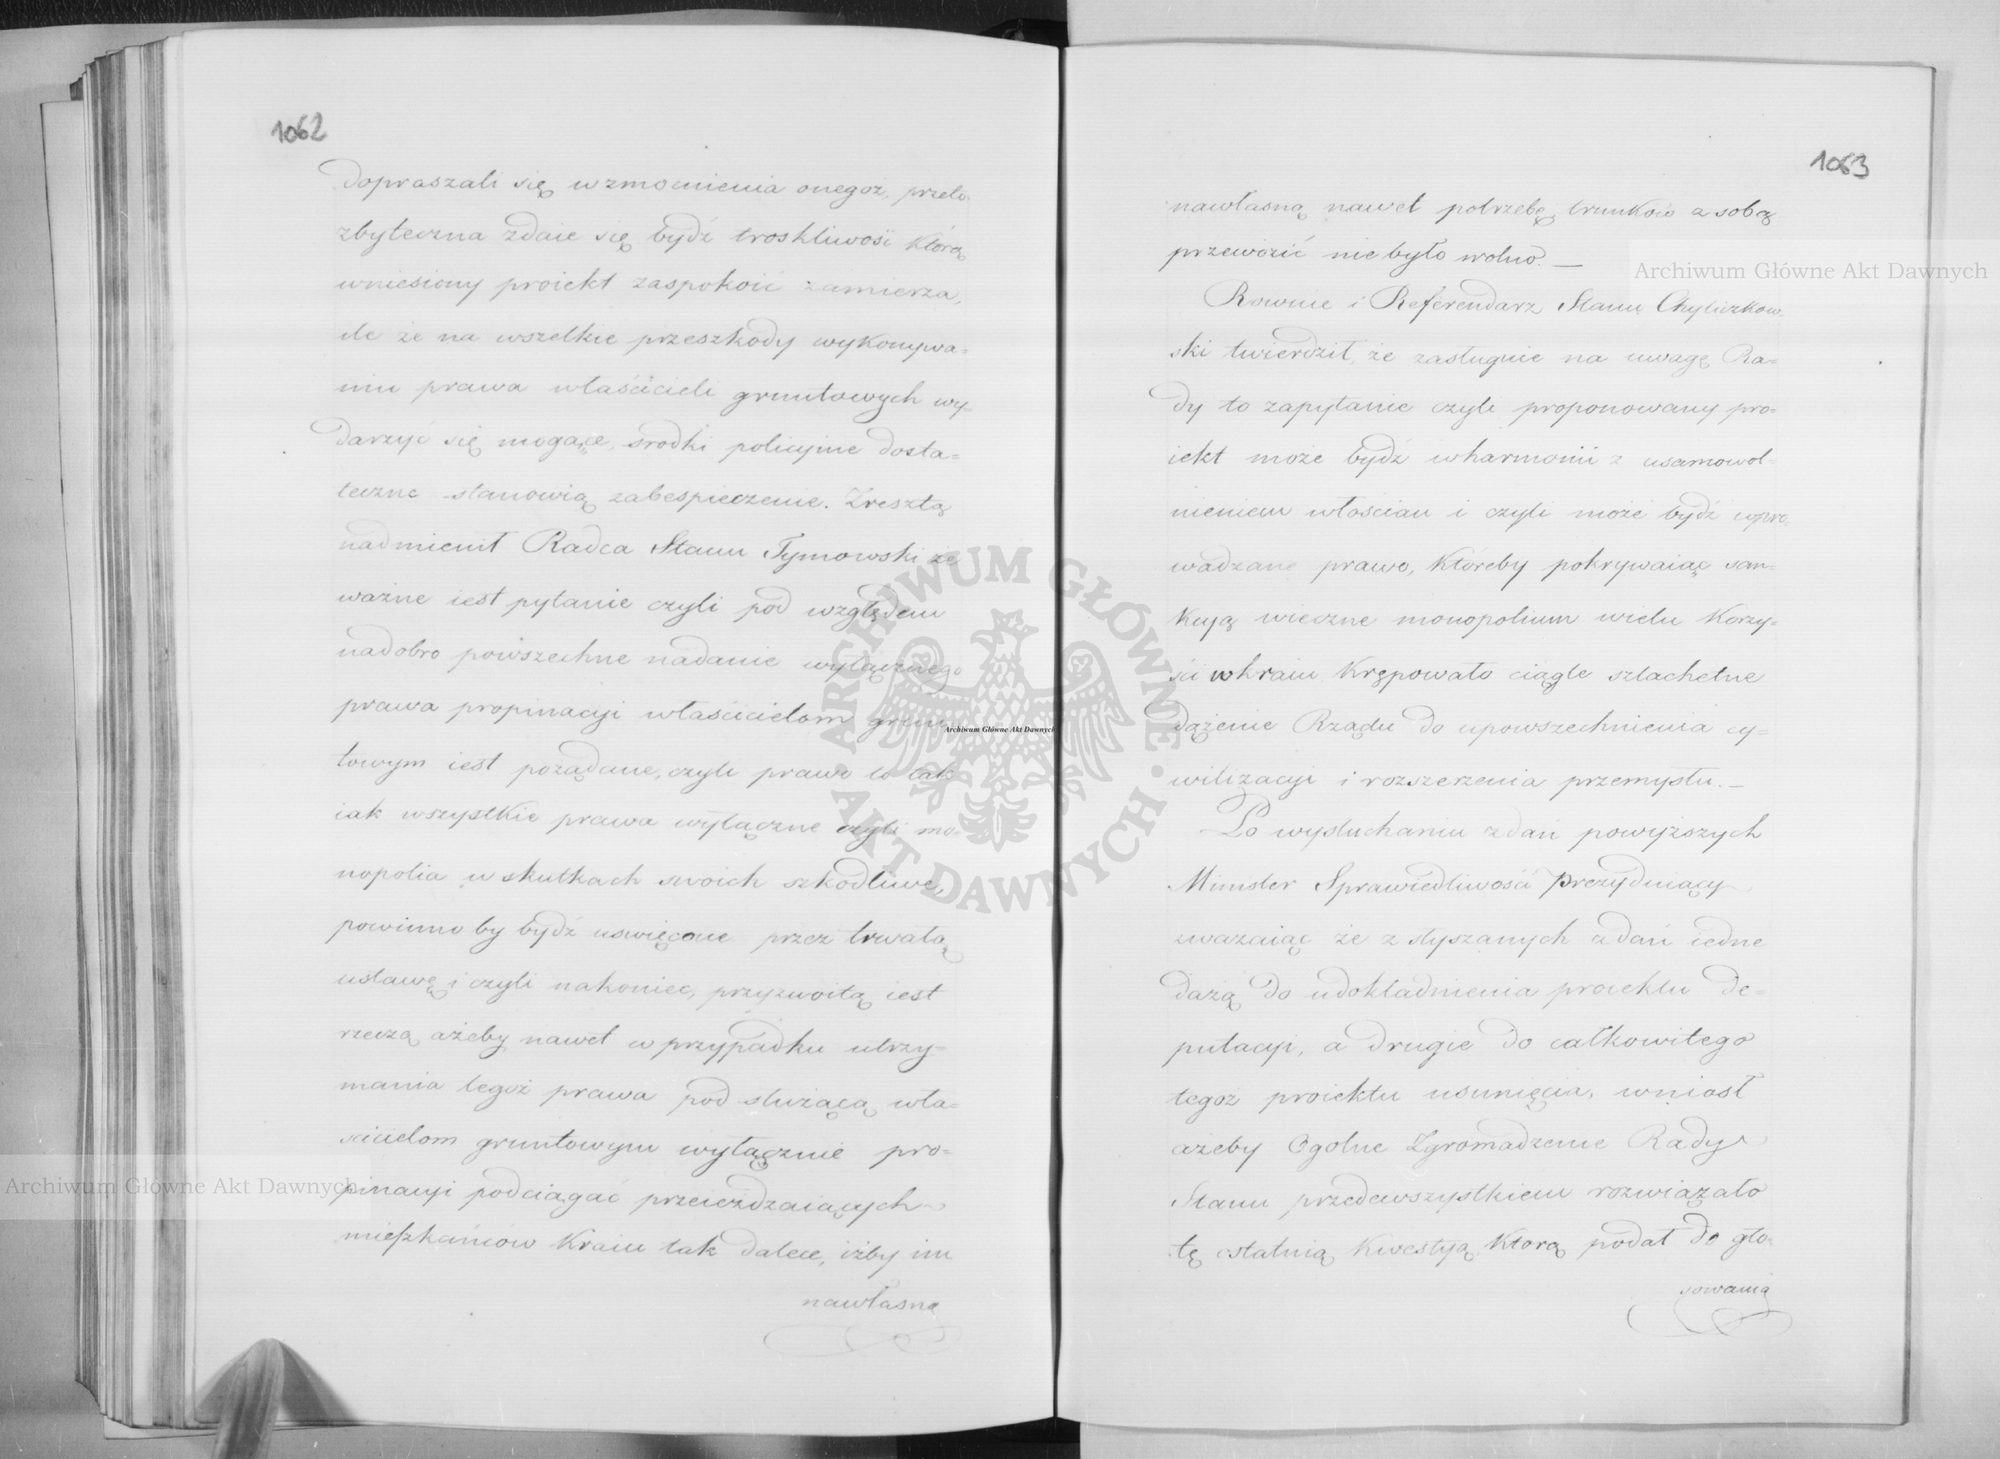 1062
dopraszali się wzmocnienia onegoż, przeto
zbyteczna zdaie się bydź troskliwość którą
wniesiony proiekt zaspokoić zamierza,
ile że na wszelkie przeszkody wykonywa=
niu prawa właścicieli gruntowych wy=
darzyć się mogące, srodki policyine dosta=
teczne stanowią zabespieczenie. Zresztą
nadmienił Radca Stanu Tymowski że
ważne iest pytanie czyli pod względem
nadobro powszechne nadanie wyłącznego
prawa propinacyi właścicielom grun=
towym iest pożądane, czyli prawo to tak
iak wszystkie prawa wyłączne czyli mo=
nopolia w skutkach swoich szkodliwe,
powinno by bydź uswięcone przez trwałą
ustawę i czyli nakoniec, przyzwoitą iest
rzeczą ażeby nawet w przypadku utrzy=
mania tegoż prawa pod służącą wła=
scicielom gruntowym wyłącznie pro=
pinacyi podciągać przeieżdzaiących
mieszkańców Kraiu tak dalece, iżby im
nawłasną
1063
nawłasną nawet potrzebę trunków z sobą
przewozić nie było wolno. —
Rownie i Referendarz Stanu Chyliczkow=
ski twierdził, że zasługuie na uwagę Ra=
dy to zapytanie czyli proponowany pro=
iekt może bydź wharmonii z usamowol=
nieniem włościan i czyli może bydź wpro=
wadzane prawo, któreby pokrywaiąc san=
kcyą wieczne monopolium wielu Korzy=
ści wkraiu Krępowało ciągle szlachetne
dążenie Rządu do upowszechnienia cy=
wilizacyi i rozszerzenia przemysłu. —
Po wysłuchaniu zdań powyższych
Minister Sprawiedliwości Prezyduiący
zważaiąc że z słyszanych zdań iedne
dażą do udokładnienia proiektu De=
putacyi, a drugie do całkowitego
tegoż proiektu usunięcia, wniosł
ażeby Ogolne Zgromadzenie Rady
Stanu przedewszystkiem rozwiązało
tę ostatnią Kwestyą, Ktorą podał do gło=
sowania
Archiwum Główne Akt Dawnych
Archiwum Główne Akt Dawnych
Archiwum Główne Akt Dawnych
ARCHIWUM GŁÓWNE · AKT DAWNYCH ·